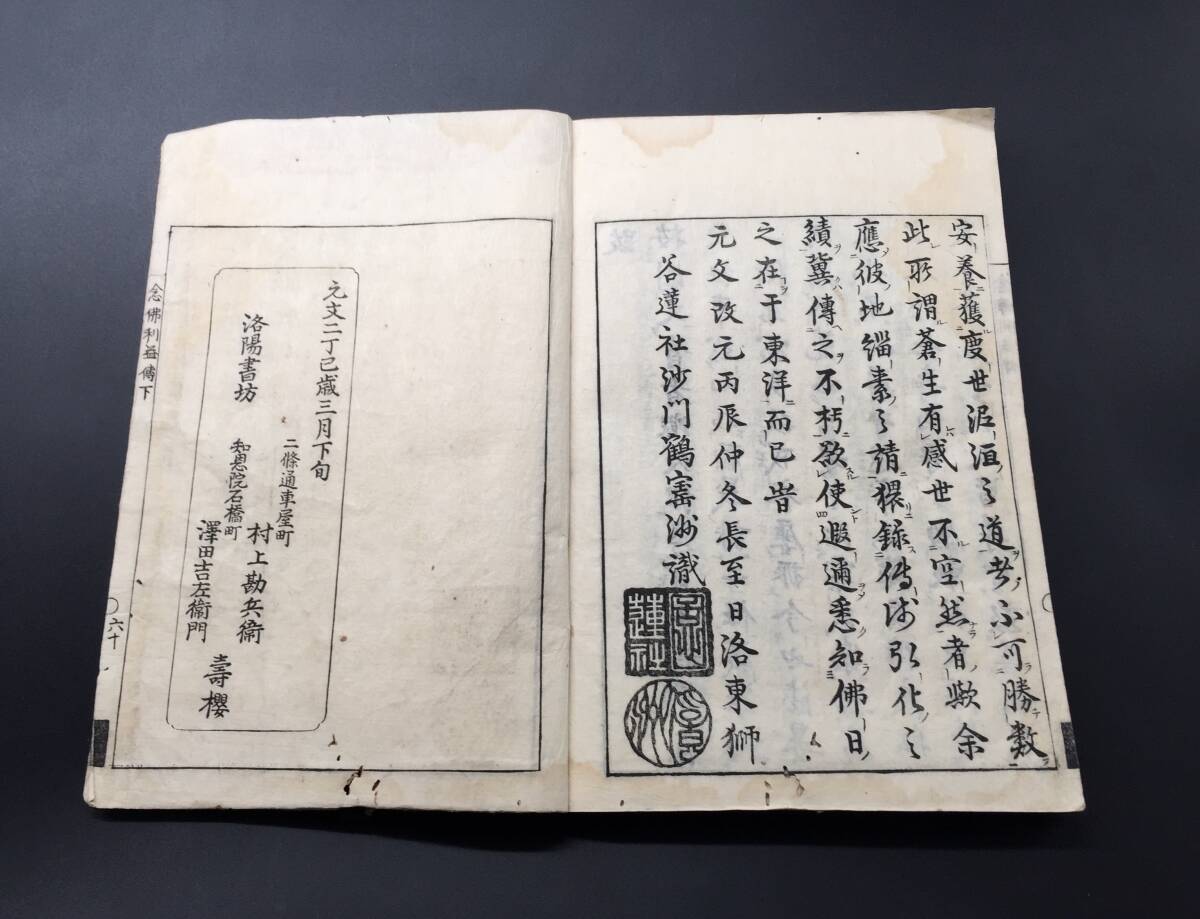 安養獲度世泥洹之道者不可勝數
此所謂蒼生有感世不空然者歟余
應彼地緇素之請猥録傳師引化之
績冀傳之不朽欲使遐邇悉知佛日
之在于東洋而已旹
元文改元丙辰仲冬長至日洛東獅
谷蓮社沙門鶴寳洲識
蓮社
元文二丁巳歳三月下旬
洛陽書坊
二條通車屋町
村上勘兵衛
知恩院石橋町
澤田吉左衞門
壽櫻
念佛利益傳下
六十